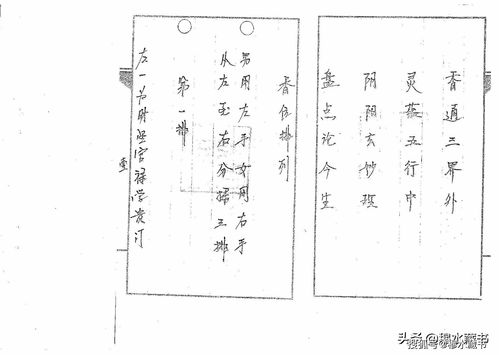 香通三界外
灵蕴五行中
阴阳玄妙理
盘点论今生
香位排列
男用左手女用右手
从左至右分掃三排
第一排
左一为财 官禄学
头条 @ 水藏书
搜狐号@ 水藏书